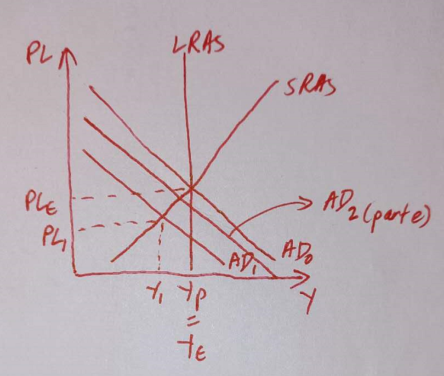 PL
LRAS
SRAS
PLE
PL1
AD2 (part e)
AD1
AD0
Y1
YP
Y
=
YE